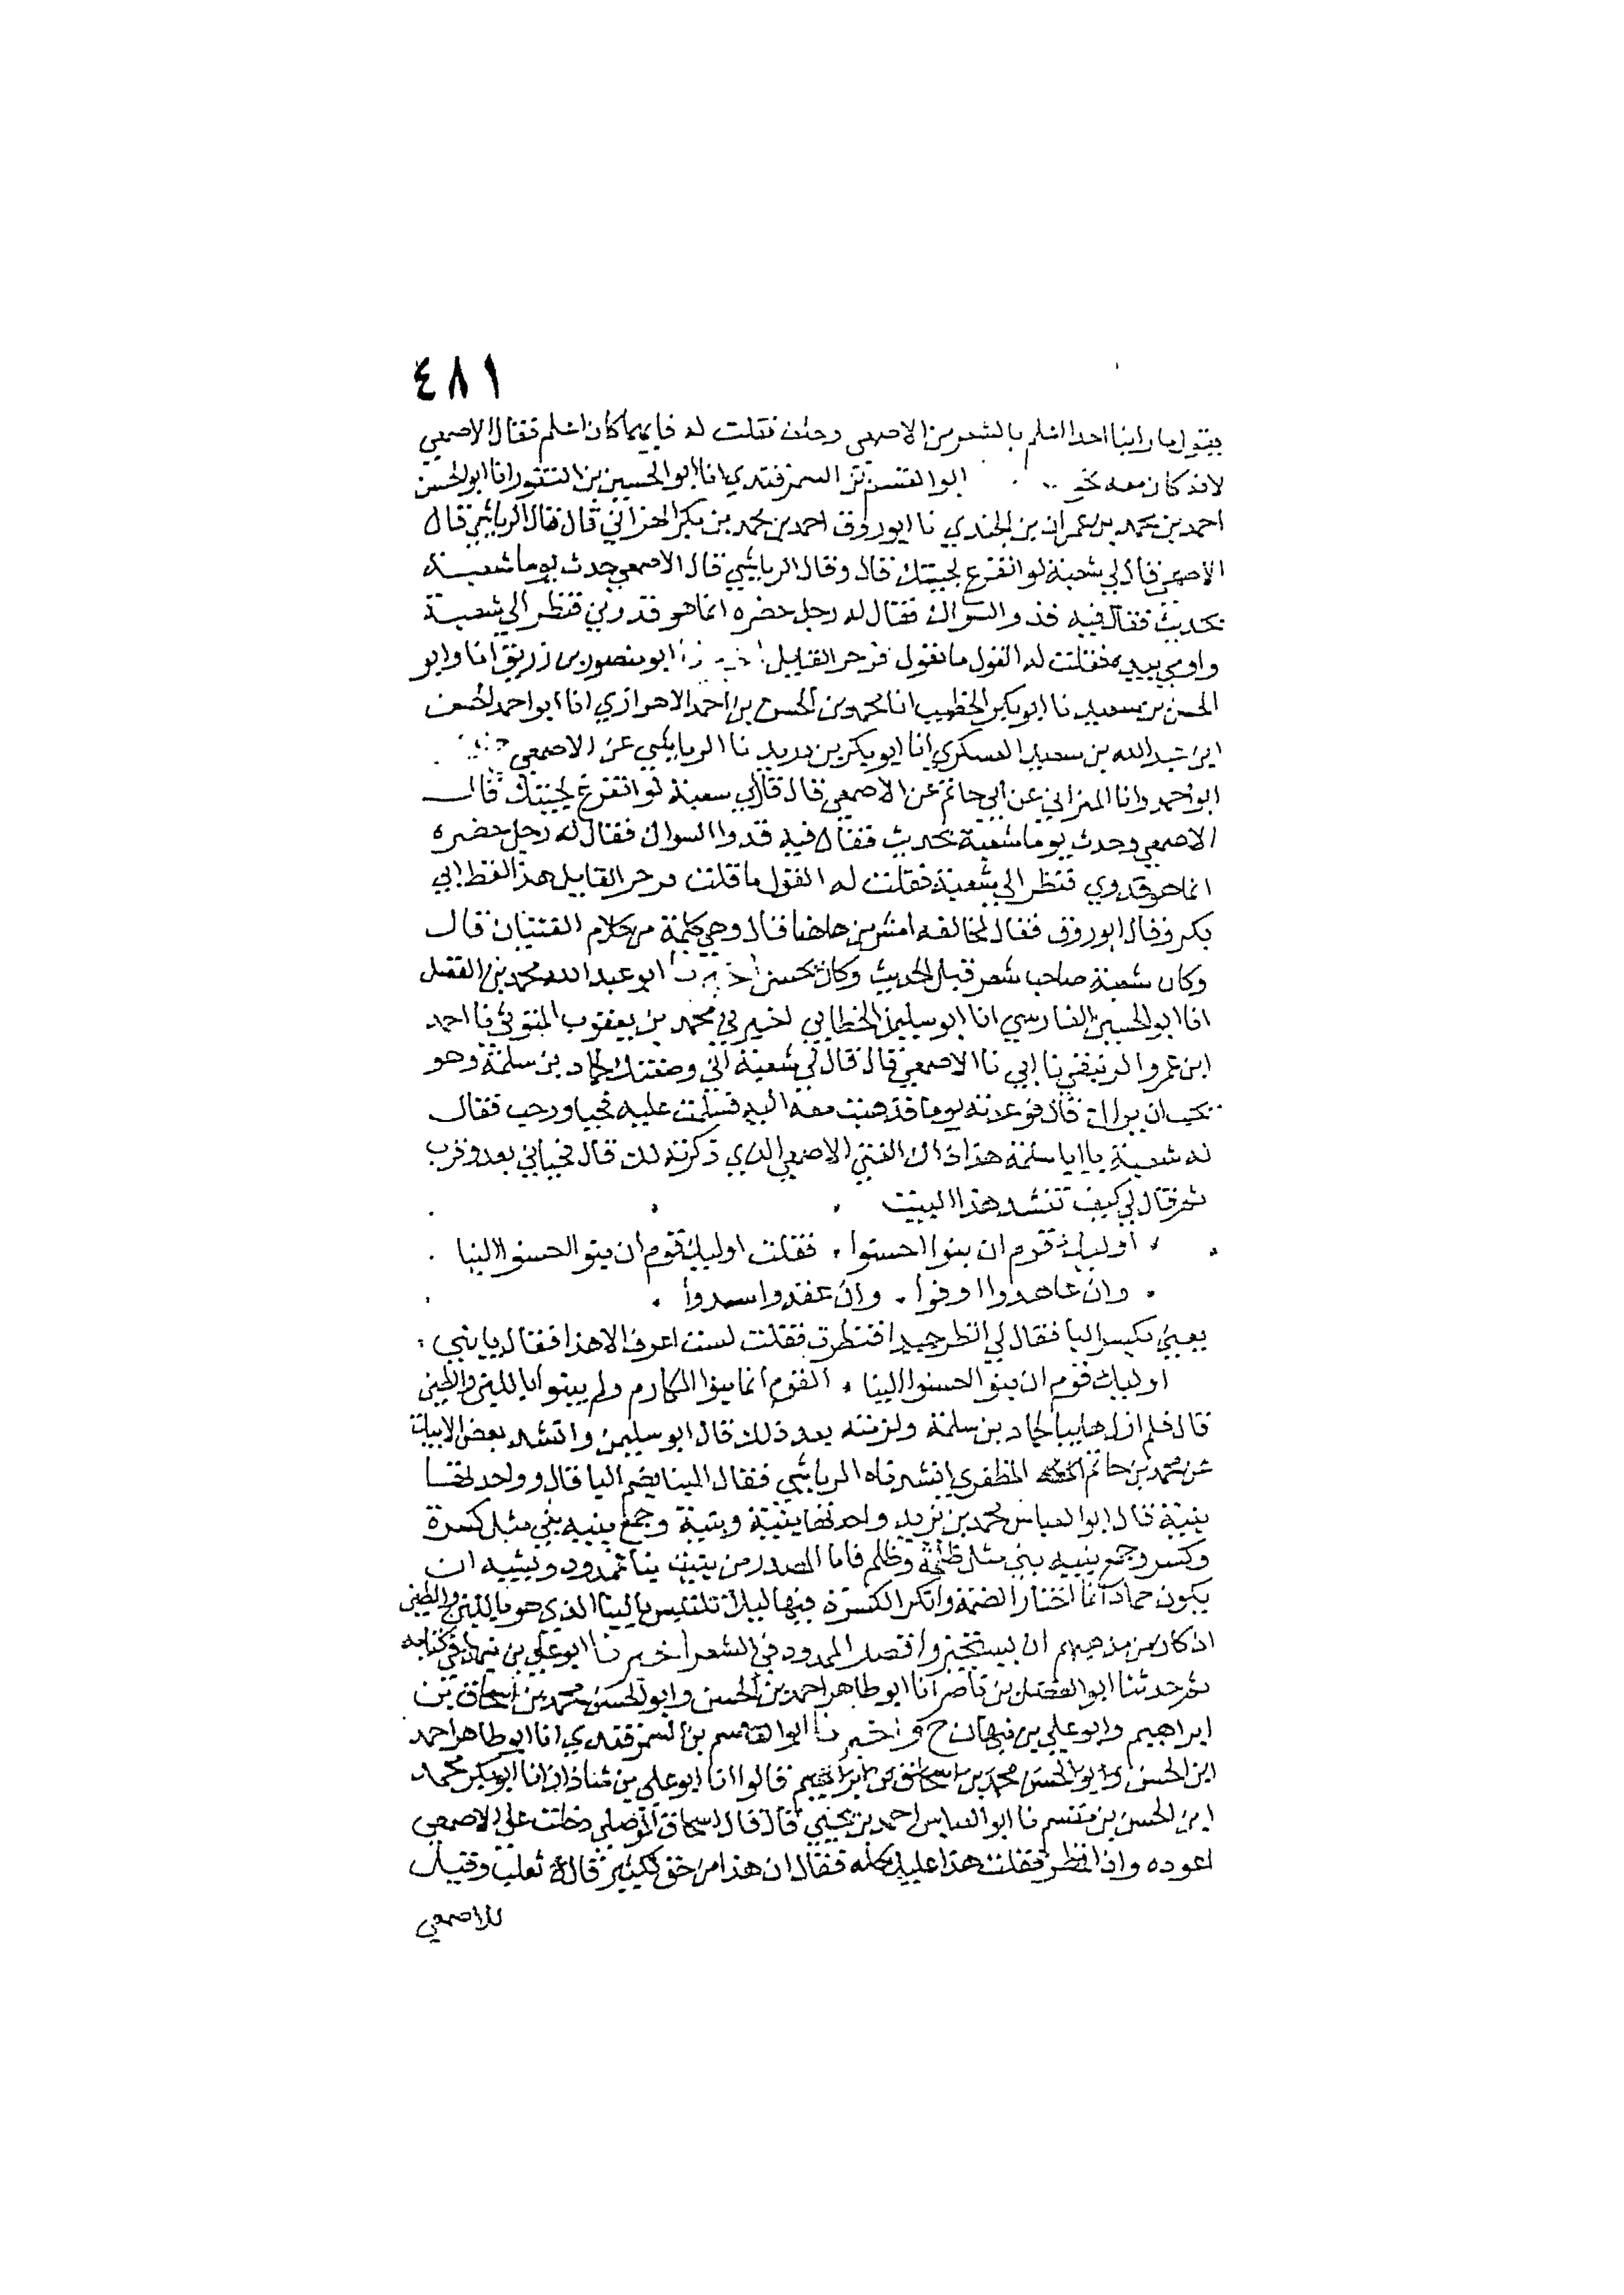 ٤٨١
يقول ما راينا احدا اعلم بالشعر من الاصمعي وخلف فقلت له فايهما كان اعلم فقال الاصمعي
لانه كان معه نحو ابو القسم بن السمرقندي انا ابو الحسين بن النقور انا ابو الحسن
احمد بن محمد بن عمران بن الجندي نا ابو روق احمد بن محمد بن بكر الهزاني قال قال الرياشي قال
الاصمعي قال لي شعبة لو اتفرغ لجيتك قال وقال الرياشي قال الاصمعي حدث يوما شعبة
بحديث فقال فيه فذو السواك فقال له رجل حضره انما هو فدوي فنظر الي شعبة
واومي بيده فقلت له القول ما تقول فزجر القايل ابو منصور بن زريق انا وابو
الحسن بن سعيد نا ابو بكر الخطيب انا محمد بن الحسن بن احمد الاهوازي انا ابو احمد الحسن
ابن عبد الله بن سعيد العسكري انا ابو بكر بن دريد نا الرياشي عن الاصمعي
ابو احمد وانا الهزاني عن ابي حاتم عن الاصمعي قال قال لي شعبة لو اتفرغ لجيتك قال
الاصمعي وحدث يوما شعبة بحديث فقال فيه فدوا السواك فقال له رجل حضره
انما هو فدوي فنظر الي شعبة فقلت له القول ما قلت فزجر القايل هذا لفظ ابي
بكر وقال ابو روق فقال لمخالفه امش من هاهنا قال وهي كلمة من كلام الفتيان قال
وكان شعبة صاحب شعر قبل الحديث وكان يحسن ابو عبد الله محمد بن الفضل
انا ابو الحسين الفارسي انا ابو سليمن الخطابي اخبرني محمد بن يعقوب المتوثي نا احمد
ابن عمرو الزنبقي نا ابي نا الاصمعي قال قال لي شعبة اني وصفتك لحماد بن سلمة وهو
يحب ان يراك قال فوعدته يوما فذهبت معه اليه فسلمت عليه فحيا ورحب فقال
له شعبة يا ابا سلمة هذا ذاك الفتي الاصمعي الذي ذكرته لك قال فحياني بعد وقرب
ثم قال لي كيف تنشد هذا البيت
اوليك قوم ان بنوا احسنوا فقلت اوليك قوم ان بنو احسنوا البنا
وان عاهدوا اوفوا وان عقدوا شدوا
يعني بكسر البا فقال لي انظر جيدا فنظرت فقلت لست اعرف الا هذا فقال يا بني
اوليك قوم ان بنو احسنوا البنا القوم انما بنوا المكارم ولم يبنوا باللبن والطين
قال فلم ازل هايبا لحماد بن سلمة ولزمته بعد ذلك قال ابو سليمن وانشد بعض الابيات
عن محمد بن حاتم المظفري انشدناه الرياشي فقال البنا بضم البا قال وواحد البنا
بنية قال ابو العباس محمد بن يزيد واحدتها بنية وبنية وجمع بنيه بني مثل كسرة
وكسر وجمع بنيه بني مثل ظلمة وظلم فاما المصدر من بنيت بنا ممدود ويشبه ان
يكون حماد انما اختار الضمة وانكر الكسرة فيها ليلا تلتبس بالبنا الذي هو باللبن والطين
اذ كان من مذهبهم ان يستجيزوا قصر الممدود في الشعر اخبرنا ابو علي بن نبهان في كتابه
ثم حدثنا ابو الفضل بن ناصر انا ابو طاهر احمد بن الحسن وابو الحسن محمد بن اسحاق بن
ابراهيم وابو علي بن نبهان ح واخبرنا ابو القاسم بن السمرقندي انا ابو طاهر احمد
ابن الحسن وابو الحسن محمد بن اسحاق بن ابراهيم قالوا انا ابو علي بن شاذان انا ابو بكر محمد
ابن الحسن بن مقسم نا ابو العباس احمد بن يحيي قال قال اسحاق الموصلي دخلت علي الاصمعي
اعوده واذا قمطر فقلت هذا علمك كله فقال ان هذا من حق لكثير قال ثعلب وقيل
للاصمعي